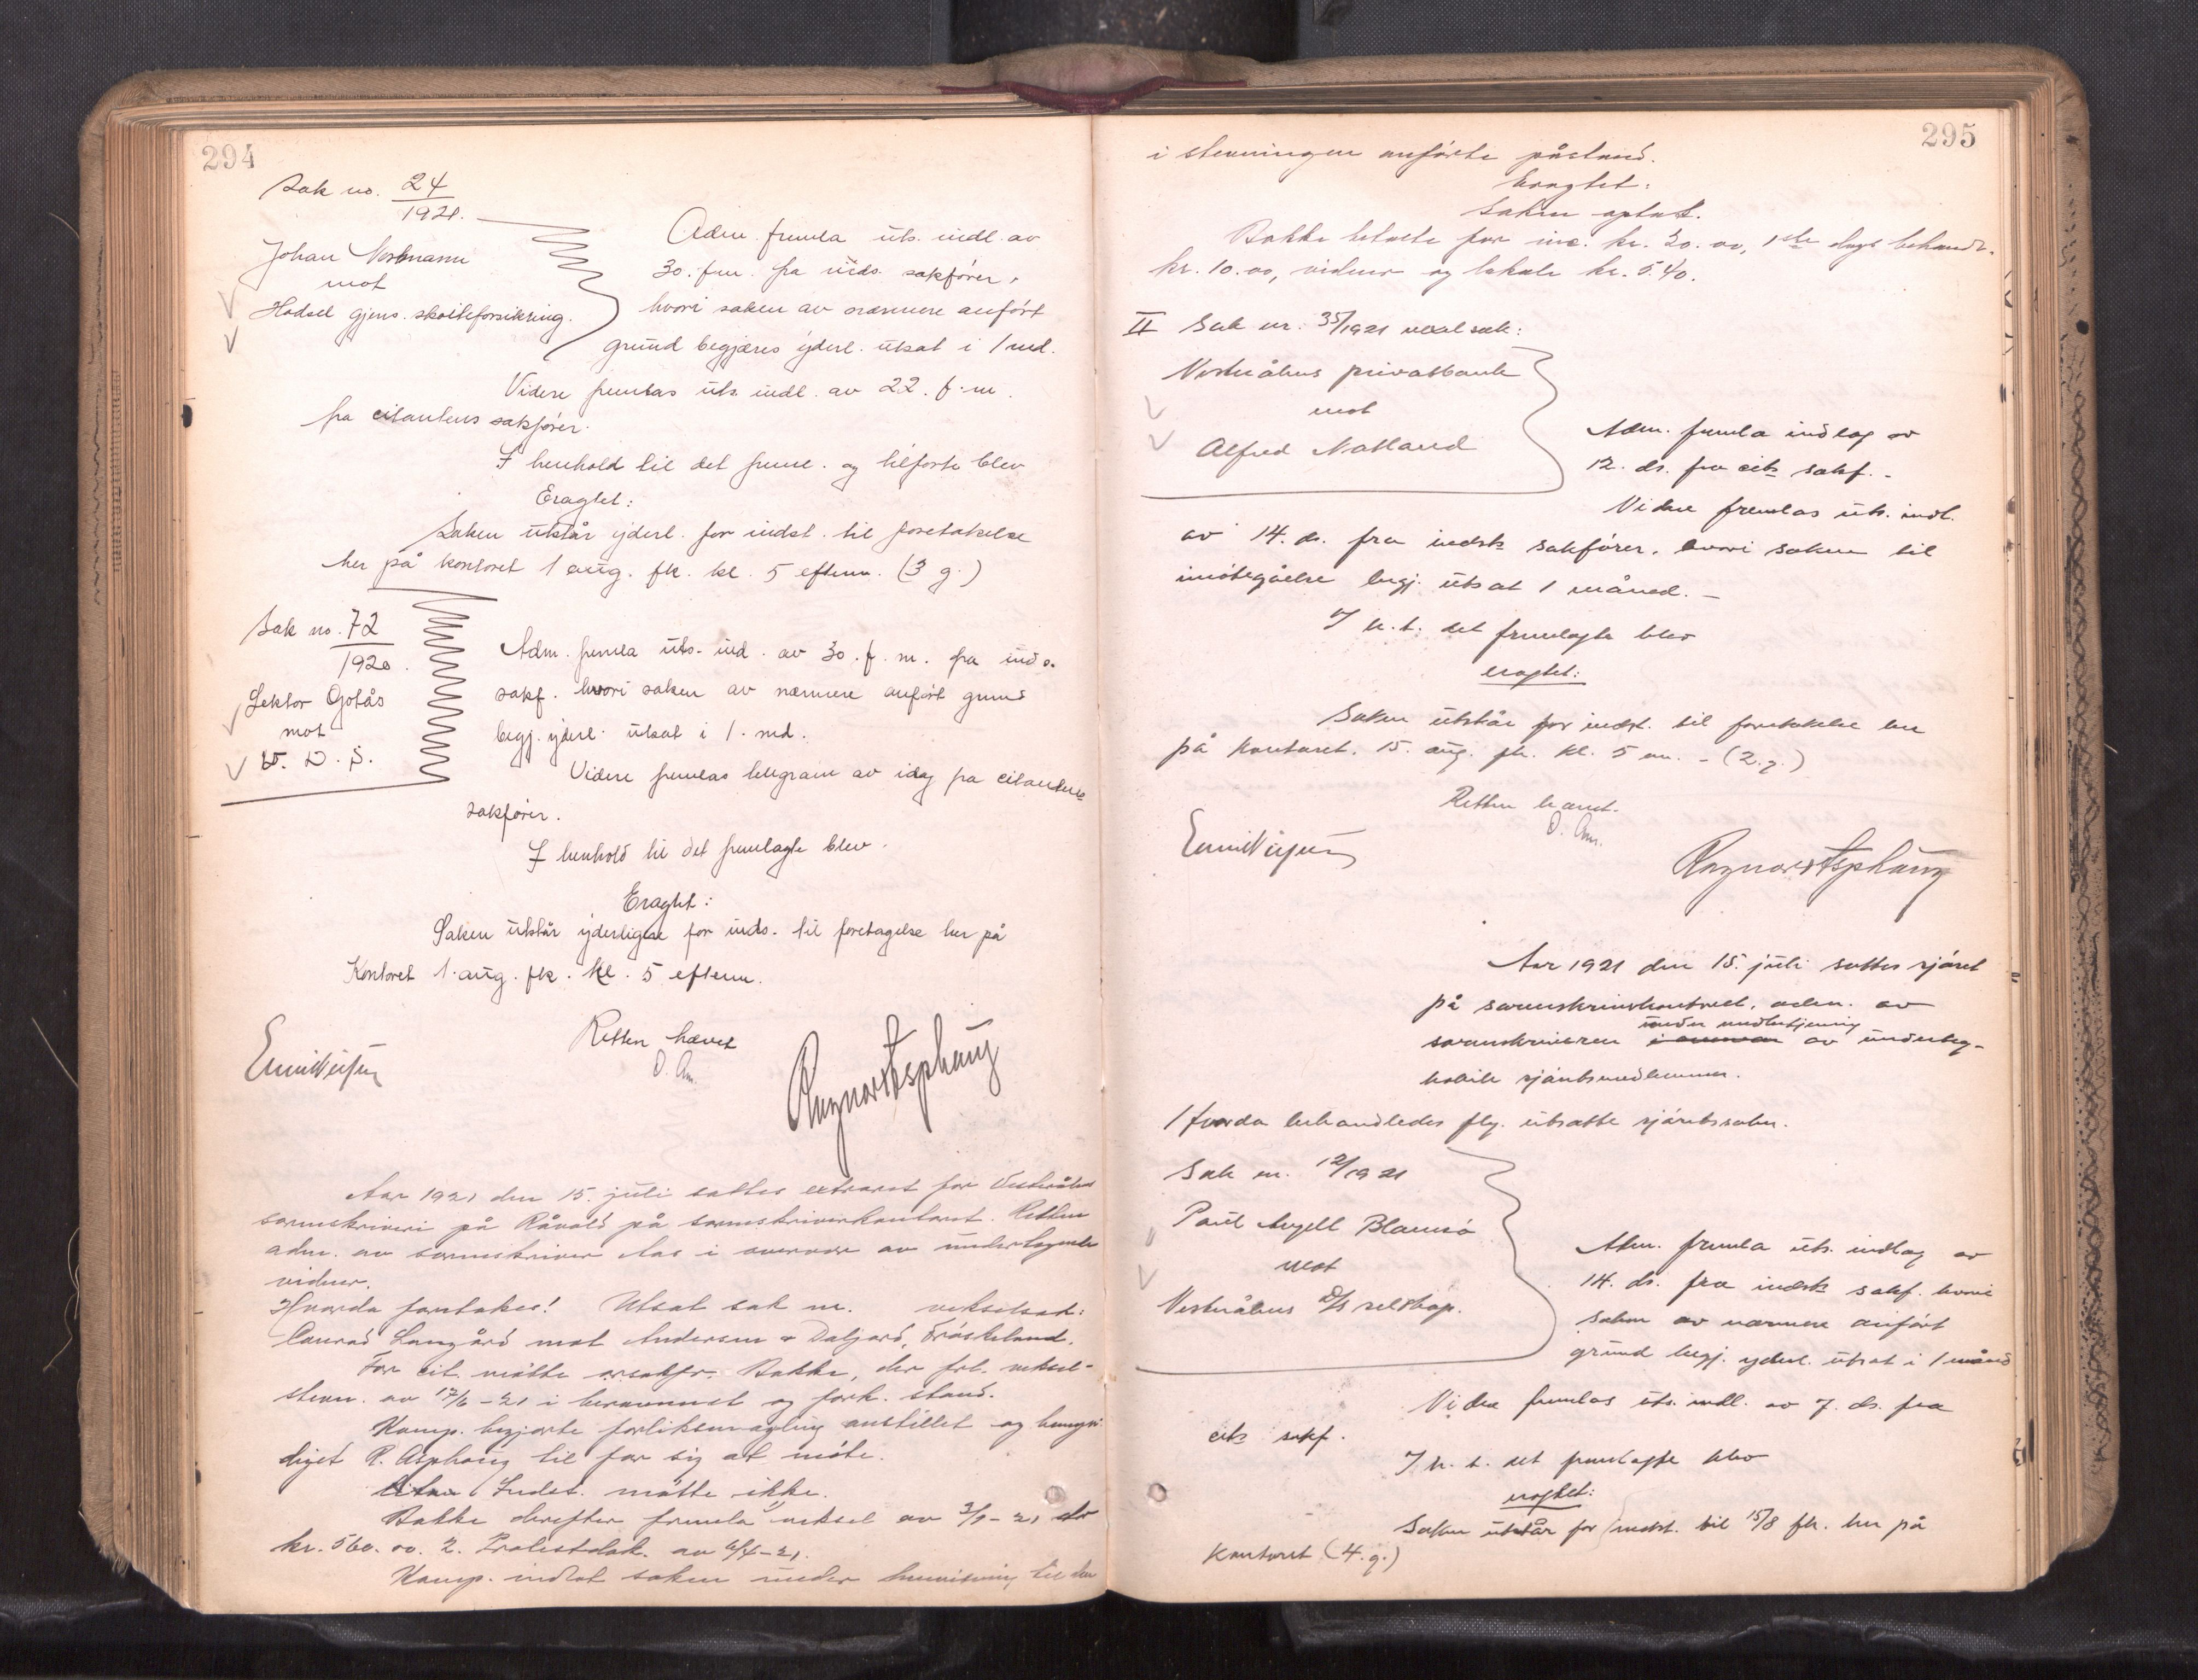 294
Sak no. 24/1921.
Johan Normann
mot
Hadsel gjens. skøiteforsikring.
Adm. fremla uts. indl. av
30. f.m. fra inds. sakfører,
hvori saken av nærmere anført
grund begjæres yderl. utsat i 1 md.
Videre fremlas uts. indl. av 22. f.m.
fra citantens sakfører.
I henhold til det freml. og tilførte blev
Eragtet:
Saken utstår yderl. for indst. til foretakelse
her på kontoret 1 aug. fk. kl. 5 efterm. (3 g.)
Sak no. 72/1920.
Lektor Gotås
mot
V. D. S.
Adm. fremla uts. ind. av 30. f. m. fra inds.
sakf. hvori saken av nærmere anført grund
begj. yderl. utsat i 1. md.
Videre fremlas telegram av idag fra citantens
sakfører.
I henhold til det fremlagte blev.
Eragtet:
Saken utstår yderligere for inds. til foretagelse her på
Kontoret 1. aug. fk. kl. 5 efterm.
Retten hævet
Ragnar Asphaug
Aar 1921 den 15. juli sattes extraret for Vesterålens
sorenskriveri på Råvold på sorenskriverkontoret. Retten
adm. av sorenskriver Aas i overvær av undertegnede
vidner.
Hvorda foretokes: Utsat sak nr. vekselsak:
Conrad Langård mot Andersen & Daljord, Frøskeland.
For cit. møtte o.r.sakfr. Bakke, der frl. veksel-
stevn. av 17/6-21 i berammet og fork. stand.
Komp. begjærte forliksmægling anstillet og bemyn-
diget R. Asphaug til for sig at møte.
Indst. møtte ikke.
Bakke derefter fremla 1) veksel av 3/1-21 str
kr. 560.00. 2. Protestdok. av 6/4-21.
Komp. indlot saken under henvisning til den
295
i stevningen anførte påstand.
Eragtet:
Saken optat.
Bakke betalte for inc. kr. 20.00, 1ste dags behandl.
kr. 10.00, vidner og lokale kr. 5.40.
II Sak nr. 35/1921 vexelsak:
Vesterålens privatbank
mot
Alfred Matland
Adm. fremla indlag av
12. ds. fra cits sakf. -
Videre fremlas uts. indl.
av 14. ds. fra indsts sakfører, hvori saken til
imøtegåelse begj. utsat 1 måned. -
I h. t. det fremlagte blev
eragtet:
Saken utstår for indst. til foretakelse her
på kontoret. 15. aug. fk. kl. 5 em. - (2. g.)
Retten hævet.
Ragnar Asphaug
Aar 1921 den 15. juli sattes sjøret
på sorenskriverkontoret, adm. av
sorenskriveren under medbetjening av underteg-
nede sjøretsmedlemmer.
Hvorda behandledes flg. utsatte sjøretssaker.
Sak nr. 12/1921
Paul Angell Blamsø
mot
Vesterålens D/S selskap.
Adm. fremla uts. indlag av
14. ds. fra indsts sakf. hvori
saken av nærmere anført
grund begj. yderl. utsat i 1 måned
Videre fremlas uts. indl. av 7. ds. fra
cits sakf.
I h. t. det fremlagte blev
eragtet:
Saken utstår for indst. til 15/8 fk. her på
Kontoret (4. g.)